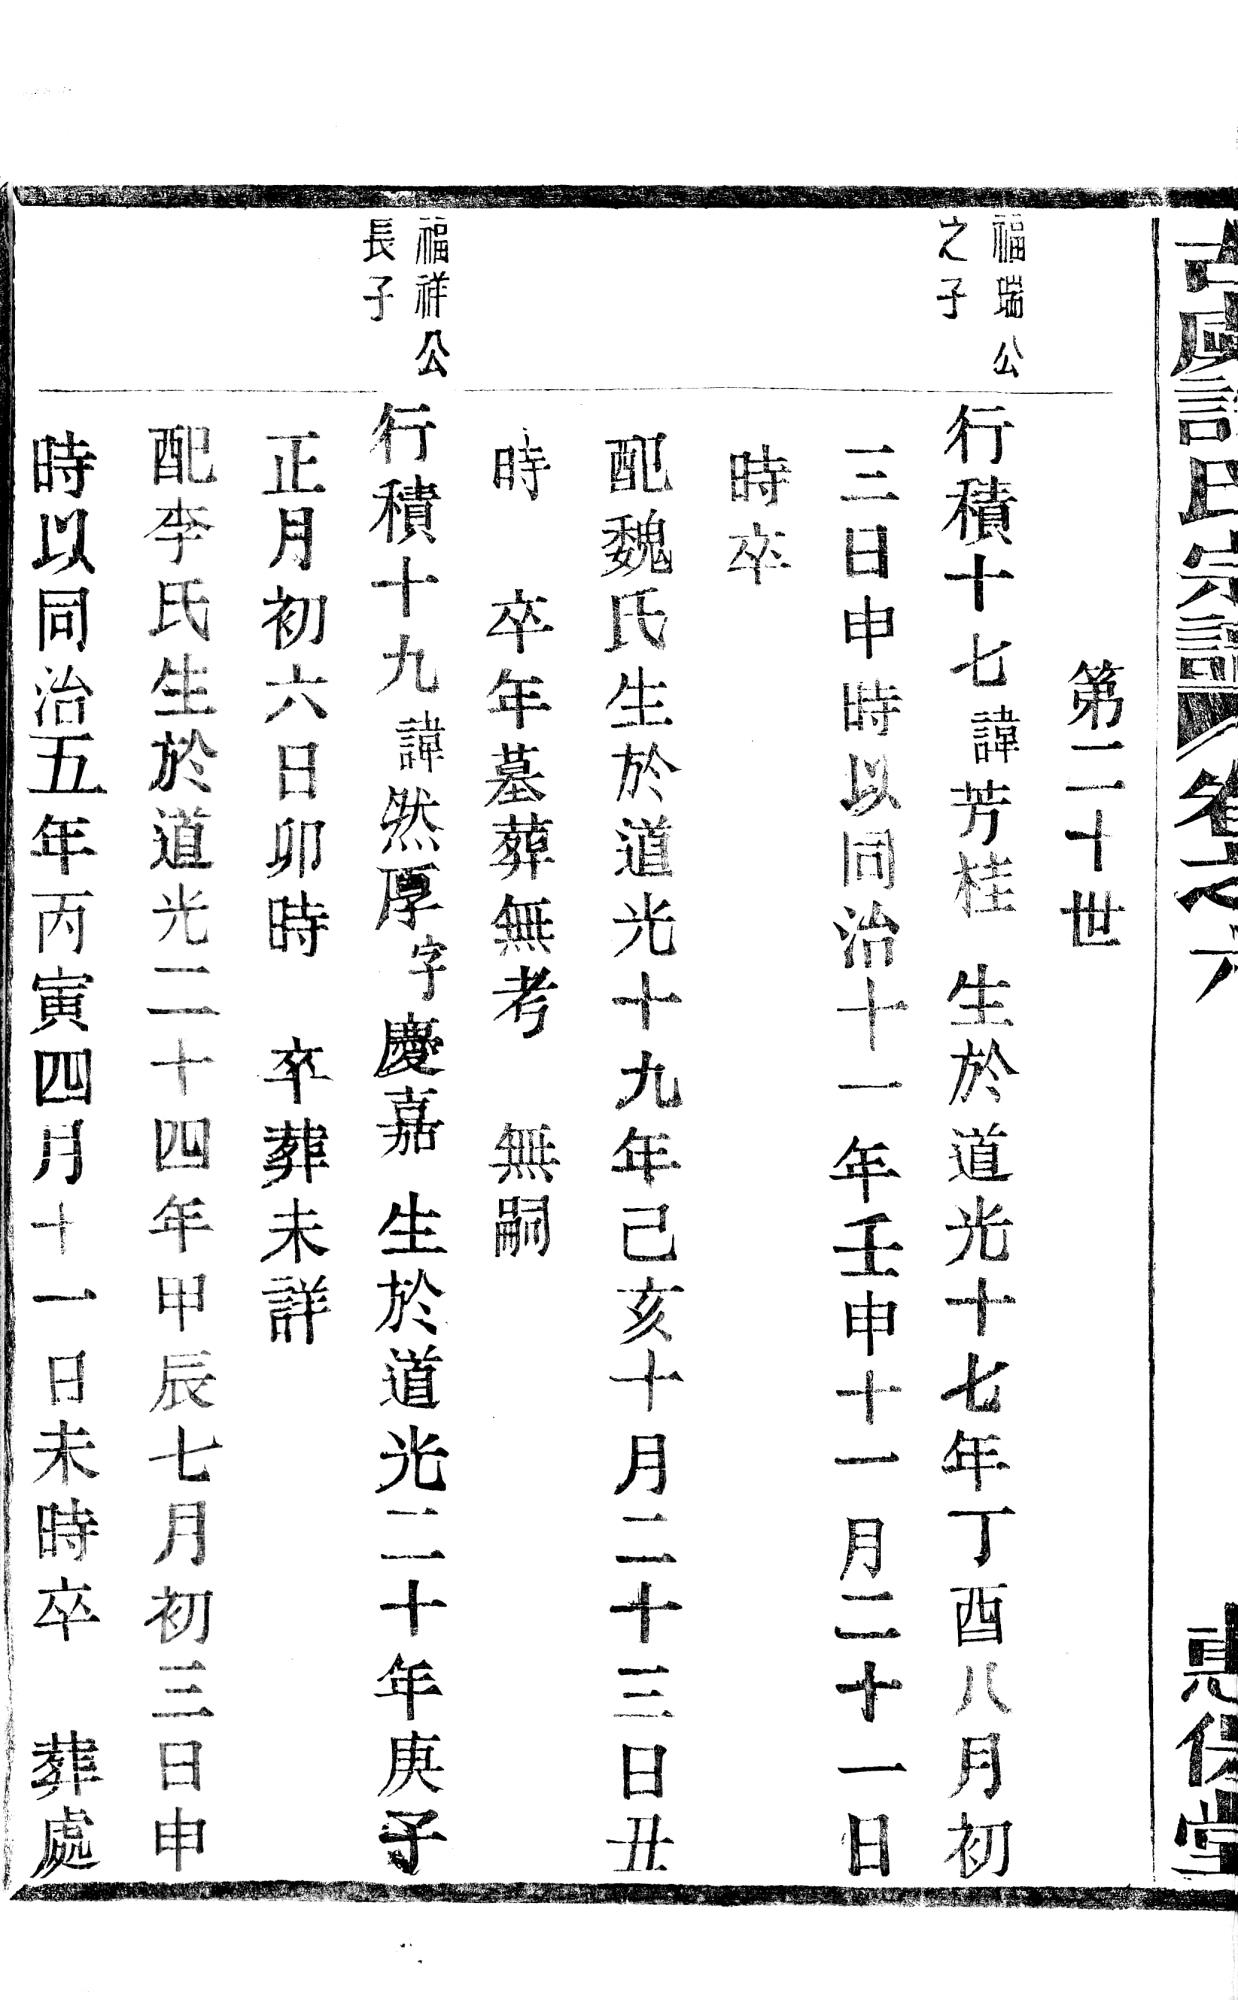 古虞許氏宗譜卷之六 惠保堂
第二十世
福瑞公
之子
行積十七諱芳桂 生於道光十七年丁酉八月初
三日申時以同治十一年壬申十一月二十一日
時卒
配魏氏生於道光十九年己亥十月二十三日丑
時 卒年墓葬無考 無嗣
福祥公
長子
行積十九諱然厚字慶嘉 生於道光二十年庚子
正月初六日卯時 卒葬未詳
配李氏生於道光二十四年甲辰七月初三日申
時以同治五年丙寅四月十一日未時卒 葬處